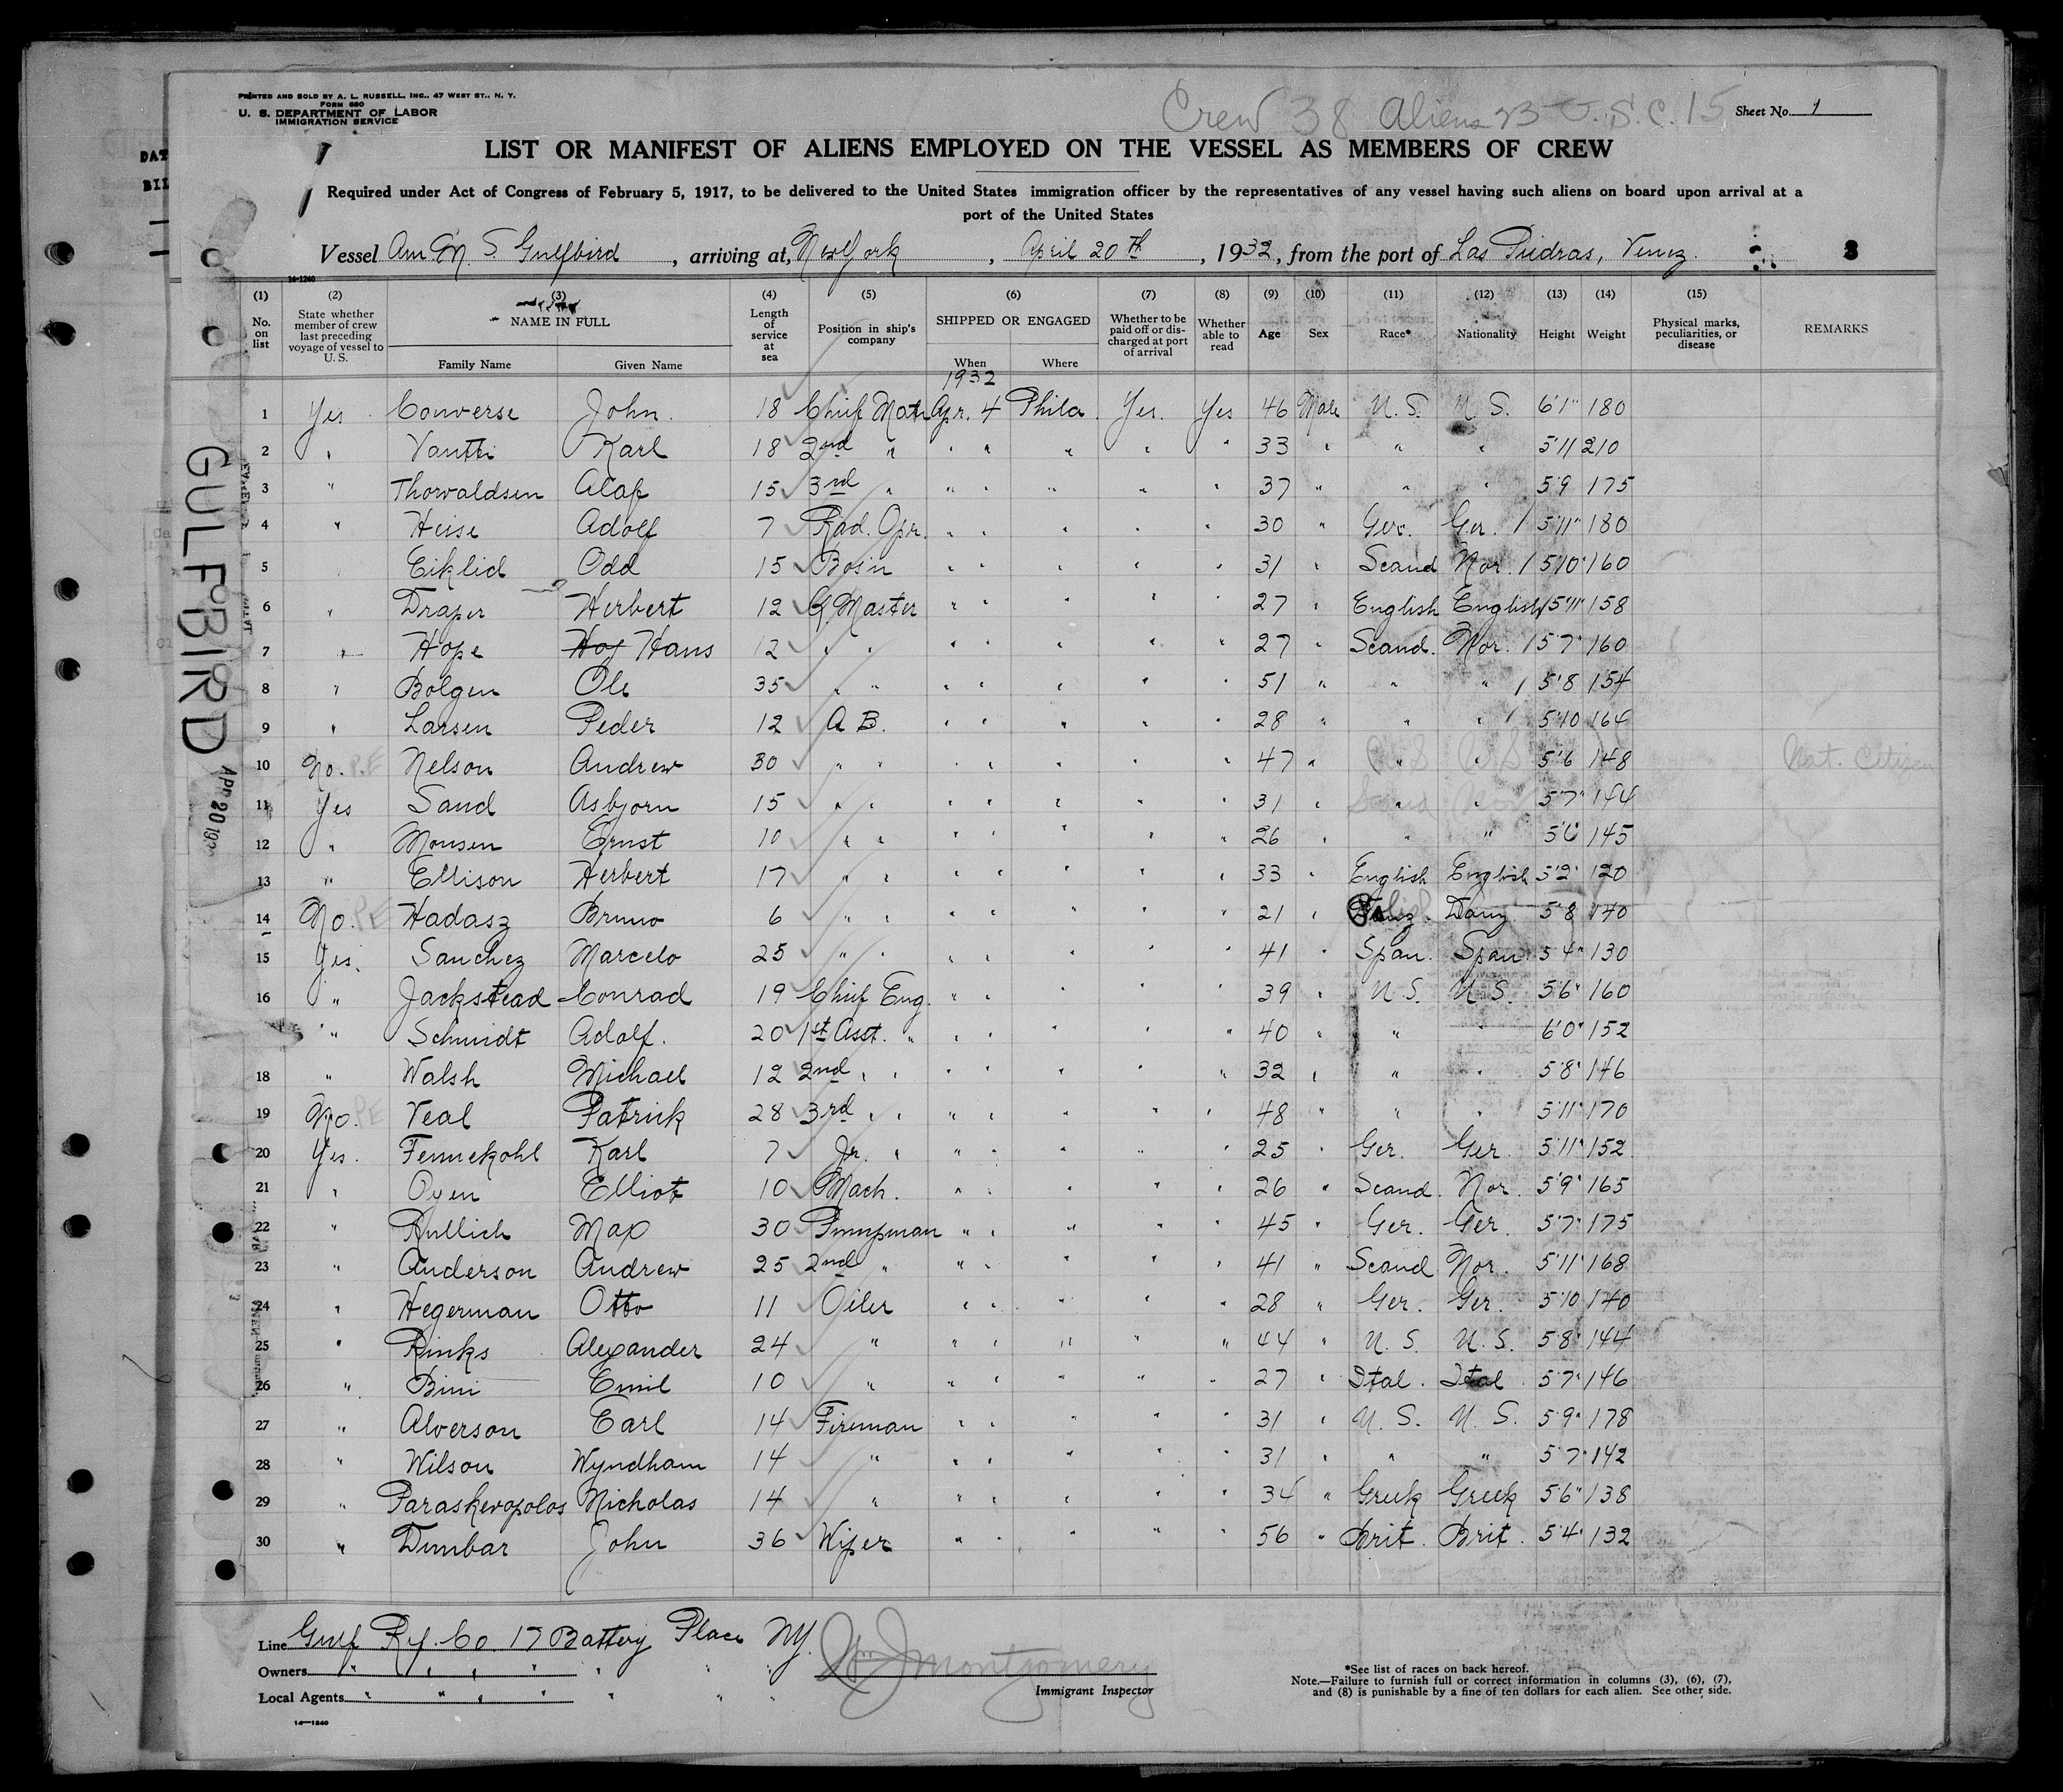 PRINTED AND SOLD BY A. L. RUSSELL, INC., 47 WEST ST., N. Y.
FORM 680
U. S. DEPARTMENT OF LABOR
IMMIGRATION SERVICE
Crew 38 Aliens 23 U.S.C. 15
Sheet No. 1
LIST OR MANIFEST OF ALIENS EMPLOYED ON THE VESSEL AS MEMBERS OF CREW
Required under Act of Congress of February 5, 1917, to be delivered to the United States immigration officer by the representatives of any vessel having such aliens on board upon arrival at a
port of the United States
Vessel Am M. S. Gulfbird, arriving at, New York, April 20th, 1932, from the port of Las Piedras, Venez. 3
14-1240
(1) No. on list (2) State whether member of crew last preceding voyage of vessel to U. S. (3) NAME IN FULL Family Name Given Name (4) Length of service at sea (5) Position in ship's company (6) SHIPPED OR ENGAGED When Where (7) Whether to be paid off or discharged at port of arrival (8) Whether able to read (9) Age (10) Sex (11) Race* (12) Nationality (13) Height (14) Weight (15) Physical marks, peculiarities, or disease REMARKS
1932
1 Yes Converse John. 18 Chief Mate Apr. 4 Phila. Yes. Yes 46 Male U. S. U. S. 6'1" 180
2 " Karl 18 2nd " " " " " " 33 " " " 5'11 210
3 " Thorvaldsen Olaf 15 3rd " " " " " " 37 " " " 5'9 175
4 " Heise Adolf 7 Rad. Opr. " " " " 30 " Ger. Ger. / 5'11" 180
5 Eiklid Odd 15 Bosn " " " " " 31 " Scand Nor. / 5'10" 160
6 " Draper Herbert 12 Q Master " " " " " 27 " English English / 5'11" 158
7 " Hope Hoy Hans 12 " " " " " " " 27 " Scand. Nor. / 5'7" 160
8 " Bolgen Ole 35 " " " " " " " 51 " " " / 5'8 154
9 " Larsen Peder 12 A B. " " " " " 28 " " " / 5'10 164
10 No. P.E Nelson Andrew 30 " " " " " " " 47 " U S U S 5'6 148 Nat. Citizen
11 Yes Sand Asbjorn 15 " " " " " " " 31 " Scand Nor 5'7" 144
12 " Monsen Ernst 10 " " " " " " " 26 " " " 5'6 145
13 " Ellison Herbert 17 " " " " " " " 33 " English English 5'2" 120
14 No. PE Hadasz Bruno 6 " " " " " " " 21 " Danz. 5'8 140
15 Yes. Sanchez Marcelo 25 " " " " " " 41 " Span. Span 5'4" 130
16 " Jackstead Conrad 19 Chief Eng. " " " " " 39 " U. S. U. S. 5'6" 160
" Schmidt Adolf. 20 1st Asst. " " " " " " 40 " " " 6'0" 152
18 " Walsh Michael 12 2nd " " " " " " " 32 " " " 5'8" 146
19 No. PE Veal Patrick 28 3rd " " " " " " " 48 " " " 5'11" 170
20 Yes. Fennekohl Karl 7 Jr. " " " " " 25 " Ger. Ger. 5'11" 152
21 " Oyen Elliot 10 Mach. " " " " " 26 " Scand. Nor. 5'9" 165
22 " Rullich Max 30 Pumpman " " " " " 45 " Ger. Ger. 5'7" 175
23 " Anderson Andrew 25 2nd " " " " " " 41 " Scand Nor. 5'11" 168
24 " Hegerman Otto 11 Oiler " " " " " 28 " Ger. Ger. 5'10 140
25 " Rinks Alexander 24 " " " " " " 44 " U. S. U. S. 5'8" 144
26 " Bini Emil 10 " " " " " " 27 " Ital. Ital 5'7" 146
27 " Alverson Earl 14 Fireman " " " " " 31 " U. S. U. S. 5'9" 178
28 " Wilson Wyndham 14 " " " " " " 31 " " " 5'7" 142
29 " Paraskevopolos Nicholas 14 " " " " " " 34 " Greek Greek 5'6" 138
30 " Dunbar John 36 Wiper " " " " " 56 " Brit. Brit. 5'4" 132
GULFBIRD
APR 20 193
Line Gulf Rf. Co. 17 Battery Place NY.
Owners " " " " " " "
Local Agents " " " " " " "
Wm J Montgomery
Immigrant Inspector
*See list of races on back hereof.
Note.—Failure to furnish full or correct information in columns (3), (6), (7),
and (8) is punishable by a fine of ten dollars for each alien. See other side.
14—1240